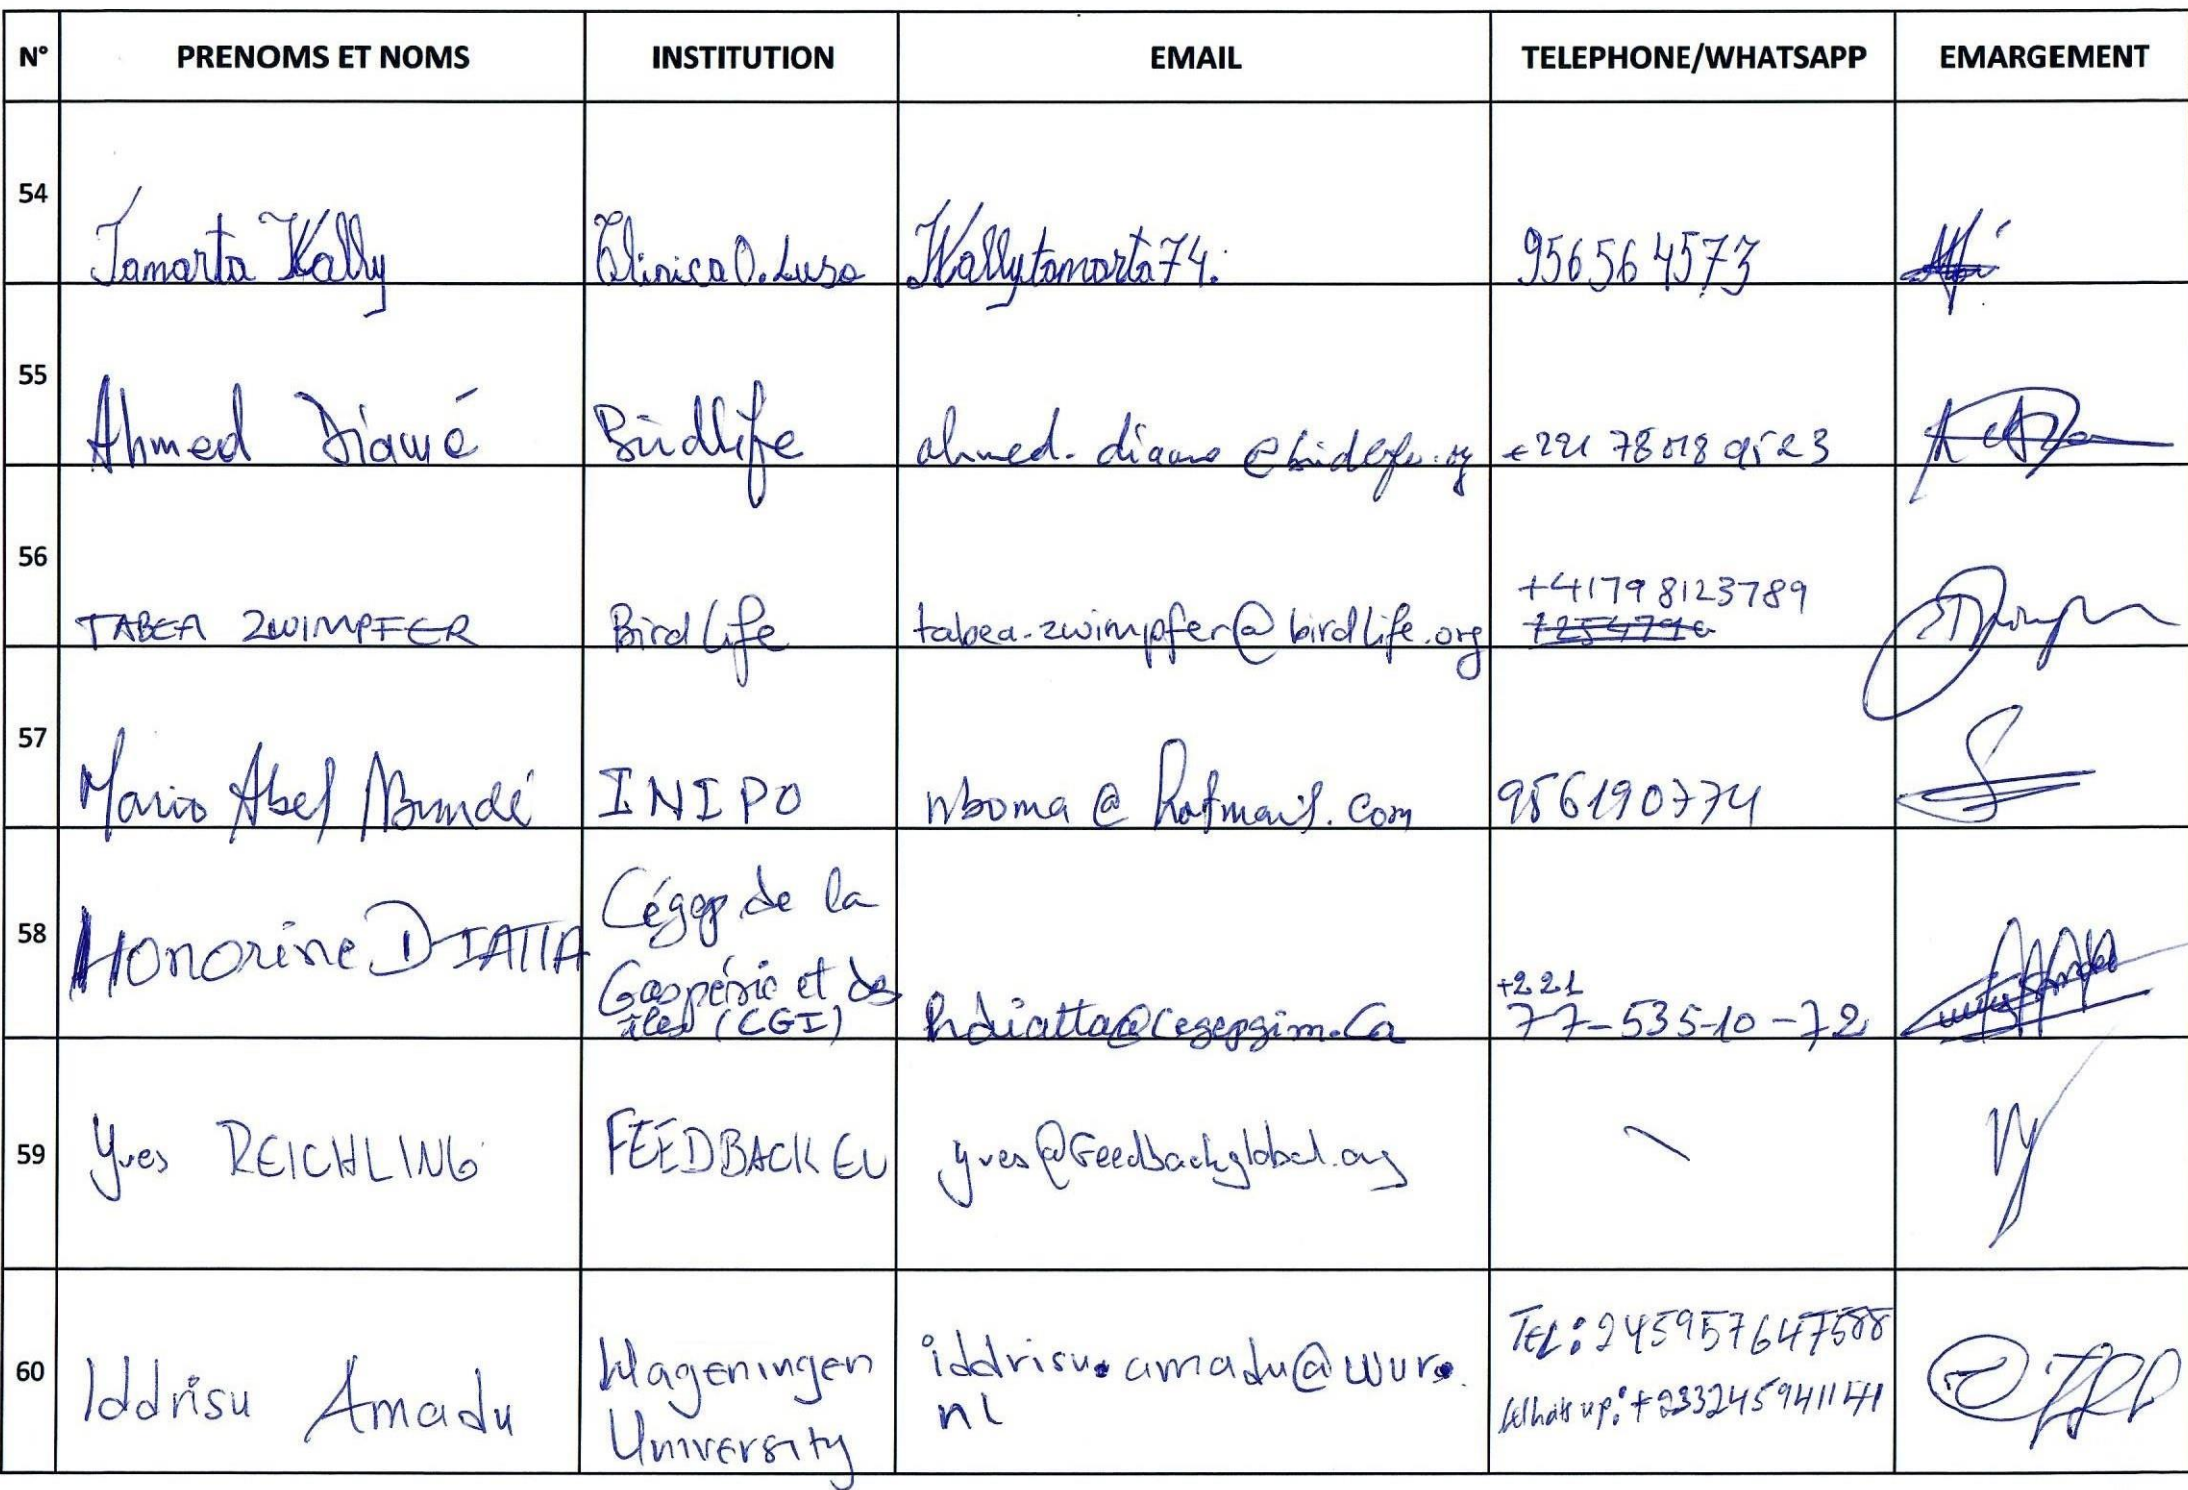 N° PRENOMS ET NOMS INSTITUTION EMAIL TELEPHONE/WHATSAPP EMARGEMENT
54 Tamarta Kally Clinica O. Luso Kallytamarta74. 956564573
55 Ahmed Diamé Birdlife ahmed. diame @birdlife.org +221 78 018 9523
+41798123789
56 TABEA ZWIMPFER BirdLife tabea.zwimpfer@birdlife.org
57 Mario Abel Nbundé INIPO nboma @ hotmail.com 956190774
Cégep de la
58 Honorine DIATTA
Gaspésie et des +221
îles (CGI) hdiatta@cegepgim.ca 77-535-10-72
59 Yves REICHLING FEEDBACK EU yves@feedbackglobal.org
TEL: 245957647588
60 Iddrisu Amadu Wageningen iddrisu.amadu@wur.
University nl Whatsup: +233245941141